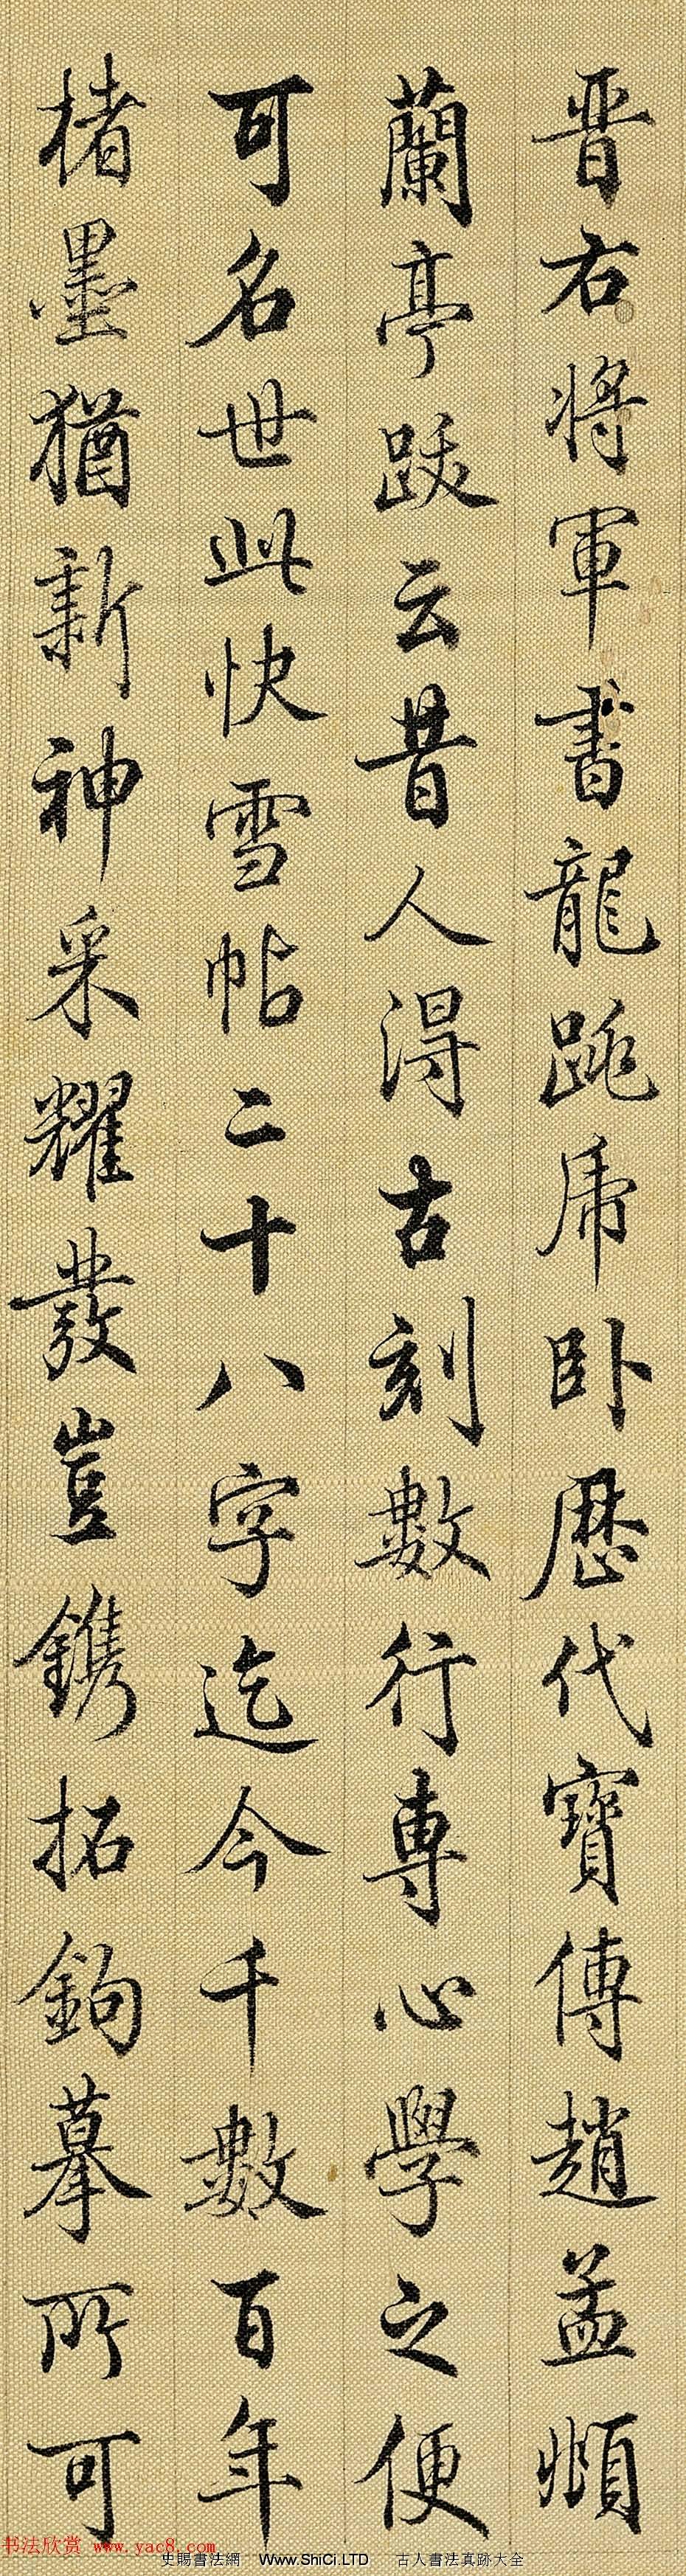 晋右將軍書龍跳虎卧歷代寶傳趙孟頫
蘭亭跋云昔人得古刻數行專心學之便
可名世此快雪帖二十八字迄今千數百年
楮墨猶新神采耀發豈鐫拓鉤摹所可
书法欣赏 www.yac8.com
史賜書法網 Www.ShiCi.LTD 古人書法真跡大全